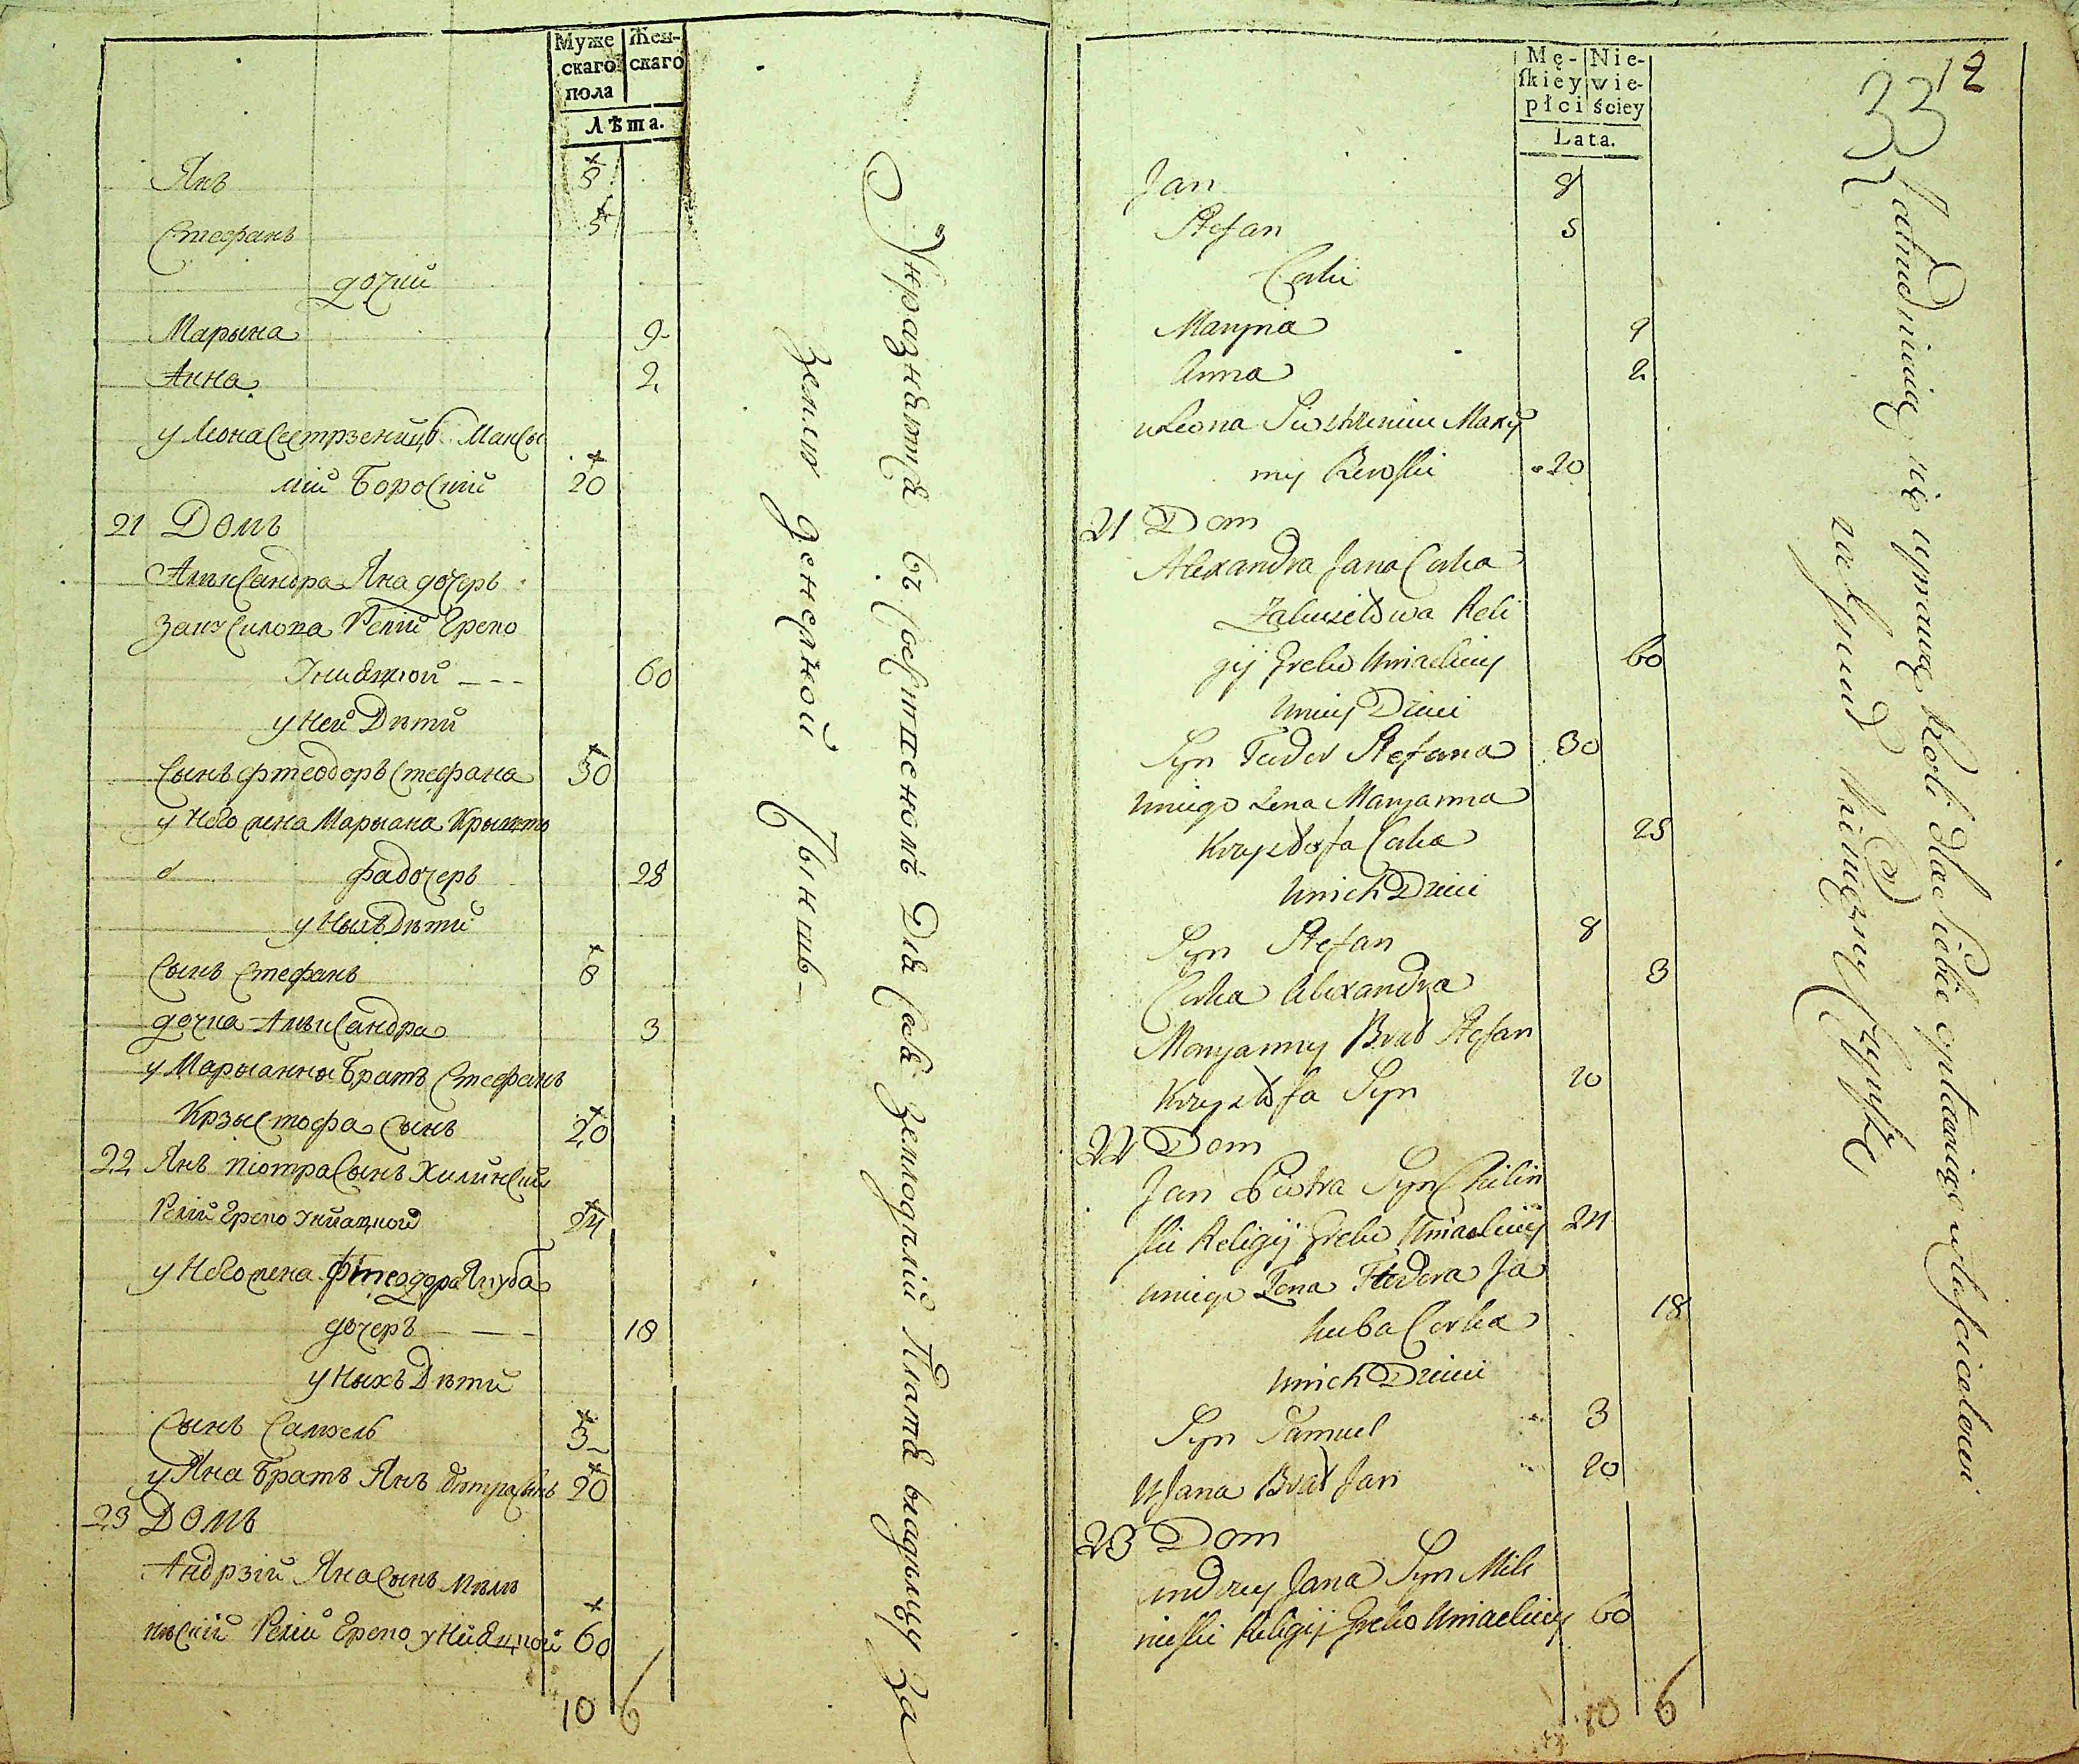 Муже Жен-
скаго скаго
пола
Лѣта.
Янъ 8
Стефанъ 5
дочки
Марына 9
Анна 2
у Леона Сестрзеницъ Максы
мій Боровскій 20
21 Домъ
Александра Яна дочеръ
Релій Греко
Унияцкой 60
у Ней Дѣти
Сынъ Фтеодоръ Стефана 30
у Него жена Марыана Крышто
фа дочеръ 28
у Ныхъ Дѣти
Сынъ Стефанъ 8
дочка Александра 3
у Марыанны Братъ Стефанъ
Крзыстофа Сынъ 20
22 Янъ Піотра Сынъ Хилинскій
Релій Греко Униацкой 24
у Него жена Фтеодора Якуба
дочеръ 18
у Ныхъ Дѣти
Сынъ Самуель 3
у Яна Братъ Янъ Піотра Сынъ 20
23 Домъ
Андрзій Яна Сынъ Мѣль
Релій Греко Унияцкой 60
10 6
Упразняется въ хозяйственомъ Для Себя Земледѣлій Платя владѣльцу За
Землю денежной Чыншъ
Mę- Nie-
skiey wie-
płci ściey
Lata.
12
33
Jan 8
Stefan 5
Corki
Maryna 9
Anna 2
u Leona Siestrzeniec Maxy
my Borowski 20
21 Dom
Alexandra Jana Corka
Reli
gij Greko Uniackiey 60
U niey Dzieci
Syn Teodor Stefana 30
U niego Zena Maryanna
Krzysztofa Corka 28
U nich Dzieci
Syn Stefan 8
Corka Alexandra 3
Maryanny Brat Stefan
Krzysztofa Syn 20
22 Dom
Jan Piotra Syn Chilin
ski Religij Greko Uniackiey 24
U niego Zena Teodora Ja
kuba Corka 18
U nich Dzieci
Syn Samuel 3
U Jana Brat Jan 20
23 Dom
Andrzey Jana Syn Mil
nicki Religij Greko Uniackiey 60
10 6
Zatrudniaią się uprawą Roli dla Siebie opłacaiąc właścicielowi
za grunt pieniężny Czynsz